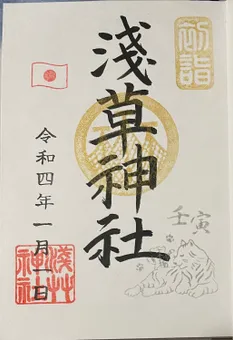 初詣
淺草神社
壬寅
令和四年一月一日
淺草神社